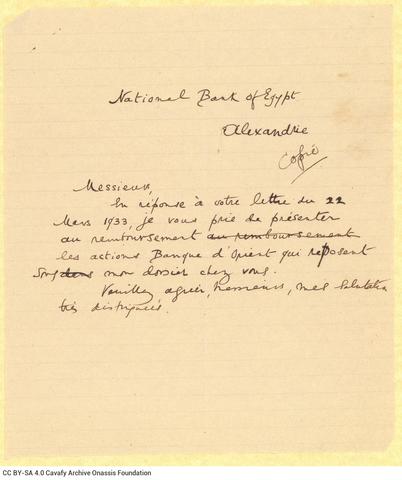 National Bank of Egypt
Alexandrie
Copié
Messieurs,
En réponse à votre lettre du 22
Mars 1933, je vous prie de présenter
au remboursement au remboursement
les actions Banque d'Orient qui reposent
sous dans mon dossier chez vous.
Veuillez agréer, Messieurs, mes salutations
très distinguées.
CC BY-SA 4.0 Cavafy Archive Onassis Foundation